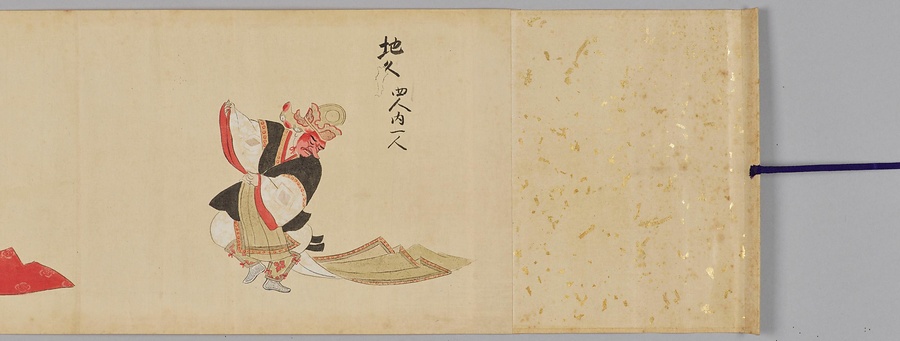 地久
四人内一人